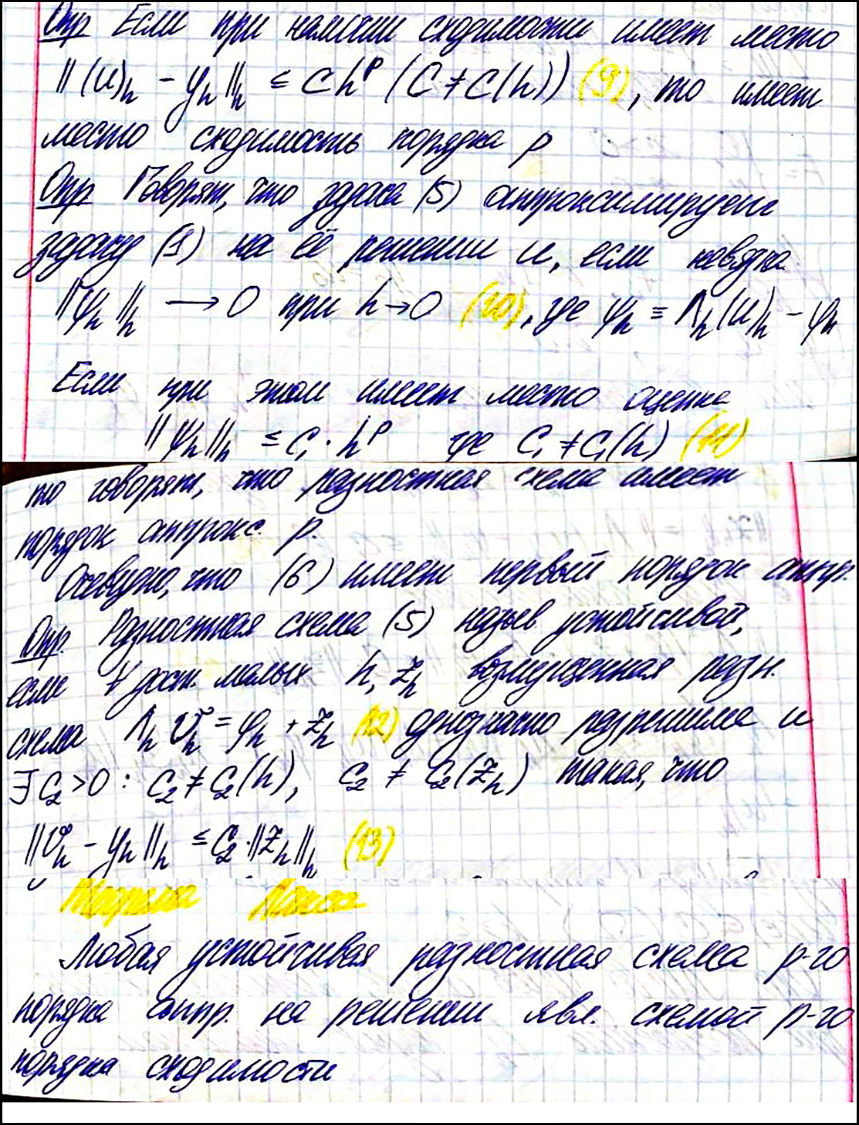 Опр Если при наличии сходимости имеет место
||(u)ₕ - yₕ||ₕ ≤ Chᵖ (C ≠ C(h)) (9), то имеет
место сходимость порядка p
Опр Говорят, что задача (5) аппроксимирует
задачу (1) на её решении u, если невязка
||ψₕ||ₕ → 0 при h→0 (10), где ψₕ ≡ Λₕ(u)ₕ - φₕ
Если при этом имеет место оценка
||ψₕ||ₕ ≤ C₁·hᵖ где C₁ ≠ C₁(h) (11)
то говорят, что разностная схема имеет
порядок аппрокс. p.
Очевидно, что (6) имеет первый порядок аппр.
Опр. Разностная схема (5) назыв устойчивой,
если ∀ дост. малых h, zₕ возмущенная разн.
схема Λₕ vₕ = φₕ + zₕ (12) однозначно разрешима и
∃ C₂>0 : C₂ ≠ C₂(h), C₂ ≠ C₂(zₕ) такая, что
||vₕ - yₕ||ₕ ≤ C₂·||zₕ||ₕ (13)
Теорема Лакса
Любая устойчивая разностная схема p-го
порядка аппр. на решении явл. схемой p-го
порядка сходимости